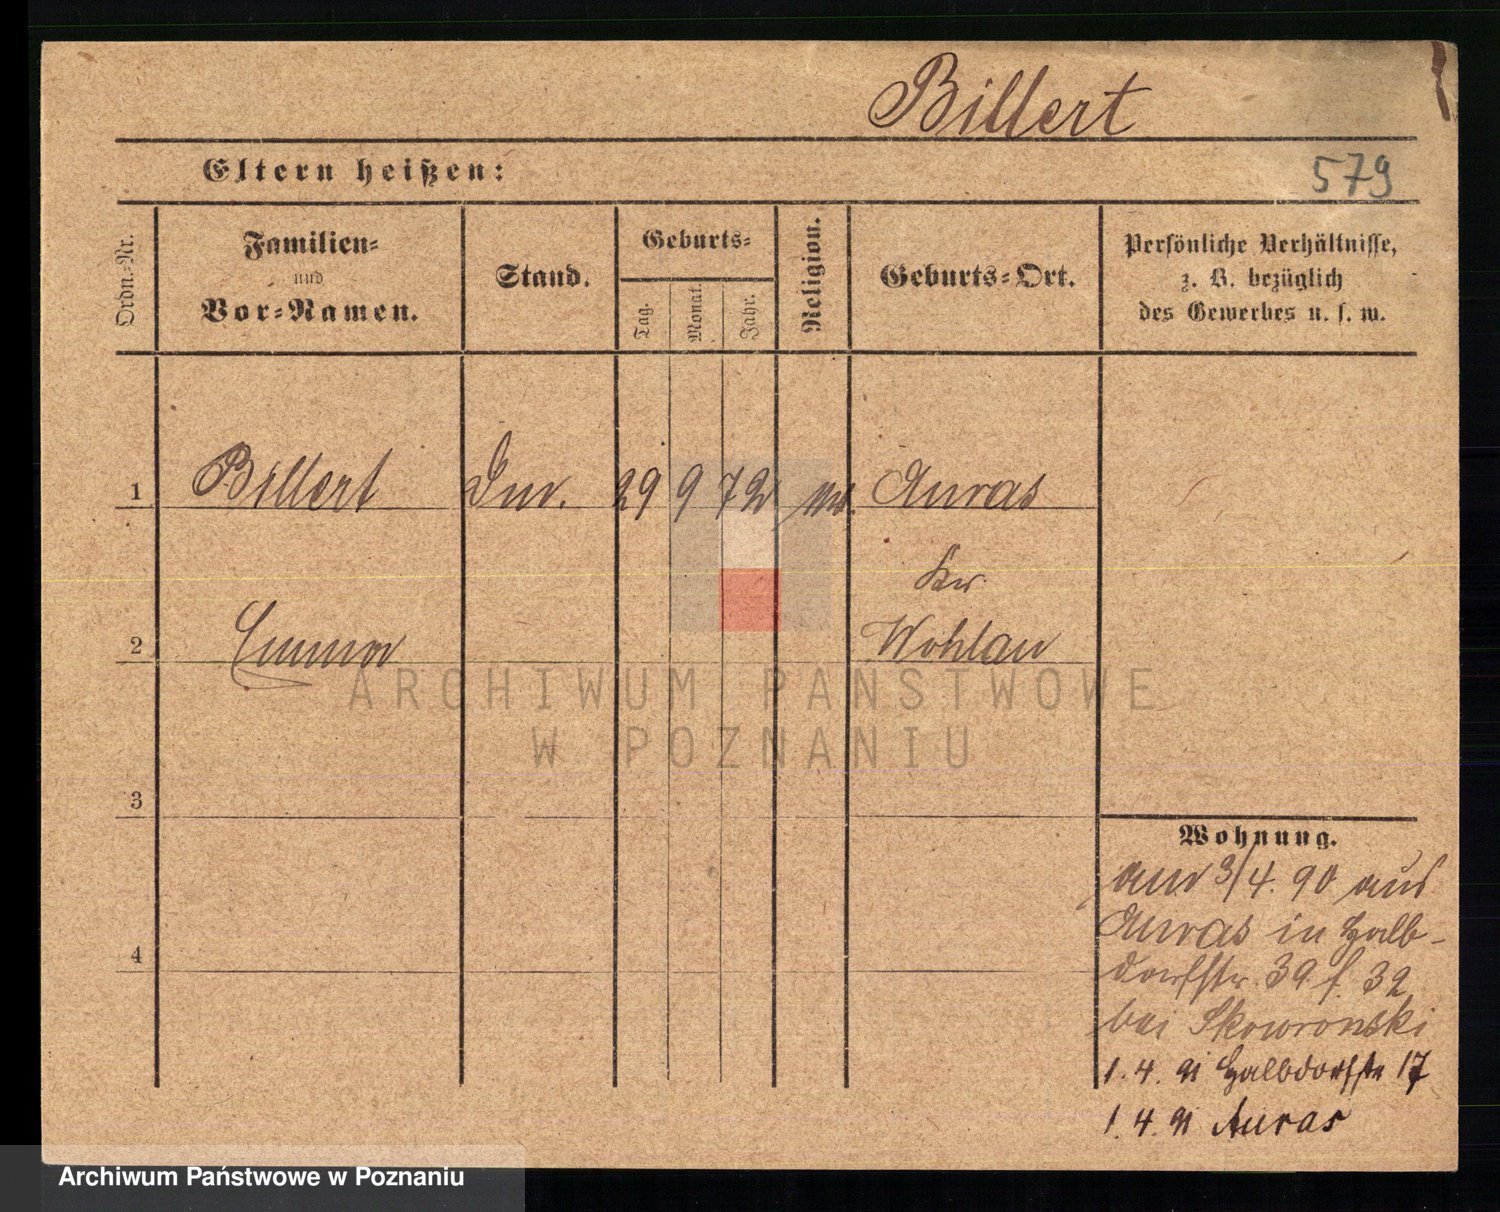 Billert
Eltern heißen:
579
Ordn.-Nr.
Familien-
und
Vor-Namen.
Stand.
Geburts-
Tag.
Monat.
Jahr.
Religion.
Geburts-Ort.
Persönliche Verhältnisse,
z. B. bezüglich
des Gewerbes u. s. w.
1 Billert 29 9 72 Auras
Kr.
2 Emma Wohlau
3
4
Wohnung.
am 3/4. 90 aus
Auras in Halb-
dorfstr. 39. f. 32
bei Skowronski
1. 4. 91 Halbdorfstr 17
1. 4. 91 Auras
ARCHIWUM PAŃSTWOWE
W POZNANIU
Archiwum Państwowe w Poznaniu